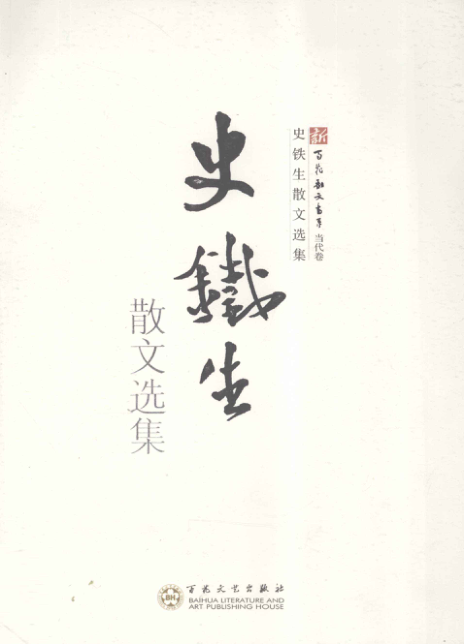 新
百花散文书系
当代卷
史铁生散文选集
史鐵生
散文选集
BH
百花文艺出版社
BAIHUA LITERATURE AND
ART PUBLISHING HOUSE